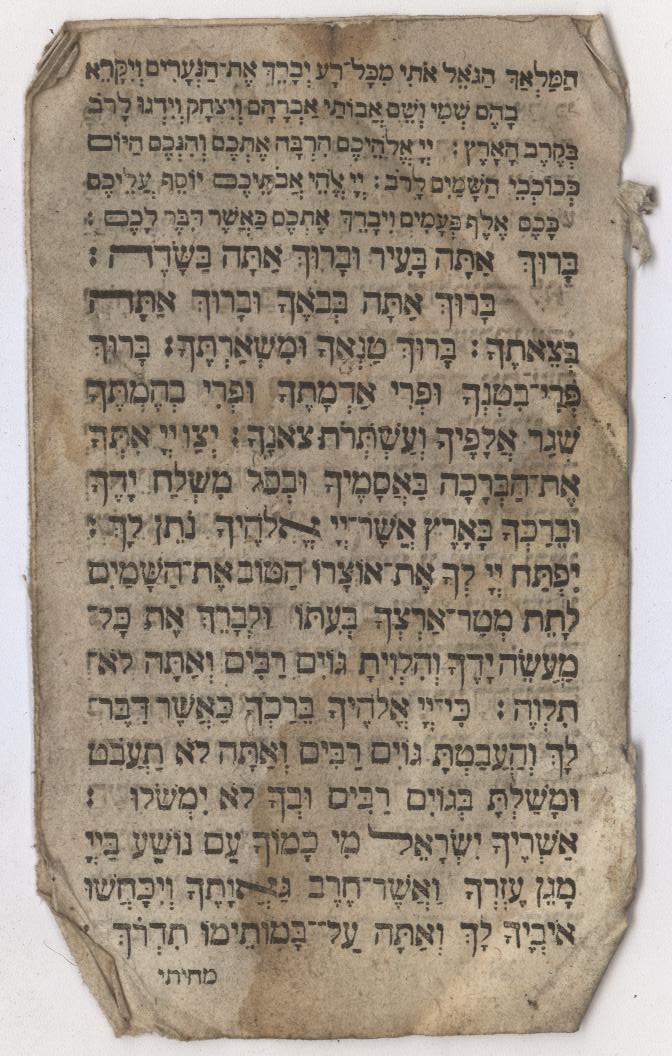 הַמַּלְאָךְ הַגֹּאֵל אֹתִי מִכָּל־רָע יְבָרֵךְ אֶת־הַנְּעָרִים וְיִקָּרֵא
בָהֶם שְׁמִי וְשֵׁם אֲבוֹתַי אַבְרָהָם וְיִצְחָק וְיִדְגּוּ לָרֹב
בְּקֶרֶב הָאָרֶץ׃ יְיָ אֱלֹהֵיכֶם הִרְבָּה אֶתְכֶם וְהִנְּכֶם הַיּוֹם
כְּכוֹכְבֵי הַשָּׁמַיִם לָרֹב׃ יְיָ אֱלֹהֵי אֲבֹתֵיכֶם יוֹסֵף עֲלֵיכֶם
כָּכֶם אֶלֶף פְּעָמִים וִיבָרֵךְ אֶתְכֶם כַּאֲשֶׁר דִּבֶּר לָכֶם׃
בָּרוּךְ אַתָּה בָּעִיר וּבָרוּךְ אַתָּה בַּשָּׂדֶה׃
בָּרוּךְ אַתָּה בְּבֹאֶךָ וּבָרוּךְ אַתָּה
בְּצֵאתֶךָ׃ בָּרוּךְ טַנְאֲךָ וּמִשְׁאַרְתֶּךָ׃ בָּרוּךְ
פְּרִי־בִטְנְךָ וּפְרִי אַדְמָתְךָ וּפְרִי בְהֶמְתֶּךָ
שְׁגַר אֲלָפֶיךָ וְעַשְׁתְּרֹת צֹאנֶךָ׃ יְצַו יְיָ אִתְּךָ
אֶת־הַבְּרָכָה בַּאֲסָמֶיךָ וּבְכֹל מִשְׁלַח יָדֶךָ
וּבֵרַכְךָ בָּאָרֶץ אֲשֶׁר־יְיָ אֱלֹהֶיךָ נֹתֵן לָךְ׃
יִפְתַּח יְיָ לְךָ אֶת־אוֹצָרוֹ הַטּוֹב אֶת־הַשָּׁמַיִם
לָתֵת מְטַר־אַרְצְךָ בְּעִתּוֹ וּלְבָרֵךְ אֵת כָּל־
מַעֲשֵׂה יָדֶךָ וְהִלְוִיתָ גּוֹיִם רַבִּים וְאַתָּה לֹא
תִלְוֶה׃ כִּי־יְיָ אֱלֹהֶיךָ בֵּרַכְךָ כַּאֲשֶׁר דִּבֶּר־
לָךְ וְהַעֲבַטְתָּ גּוֹיִם רַבִּים וְאַתָּה לֹא תַעֲבֹט
וּמָשַׁלְתָּ בְּגוֹיִם רַבִּים וּבְךָ לֹא יִמְשֹׁלוּ׃
אַשְׁרֶיךָ יִשְׂרָאֵל מִי כָמוֹךָ עַם נוֹשַׁע בַּיְיָ
מָגֵן עֶזְרֶךָ וַאֲשֶׁר־חֶרֶב גַּאֲוָתֶךָ וְיִכָּחֲשׁוּ
אֹיְבֶיךָ לָךְ וְאַתָּה עַל־בָּמוֹתֵימוֹ תִדְרֹךְ׃
מחיתי